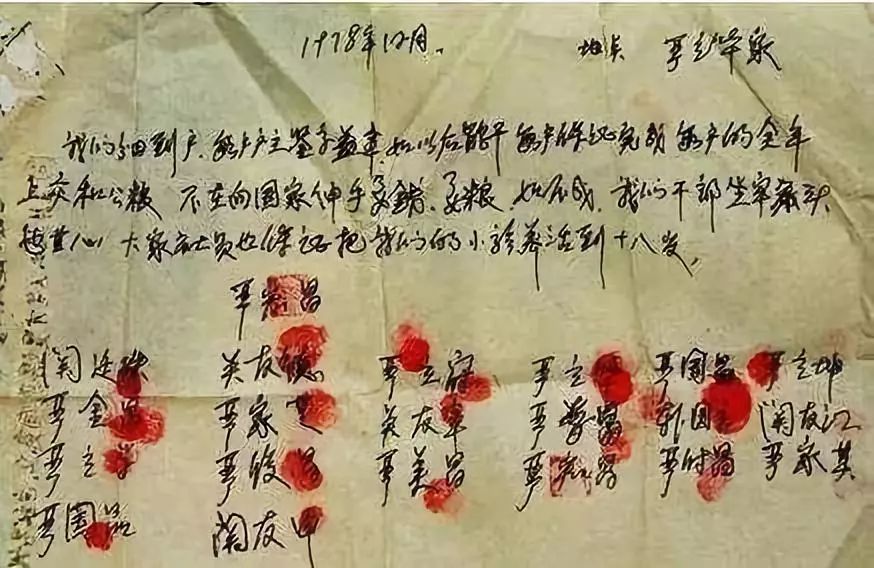 1978年12月。 地点 严立华家
我们分田到户,每户户主签字盖章,如以后能干每户保证完成每户的全年
上交和公粮 不在向国家伸手要钱要粮 如不成,我们干部坐牢杀头
也甘心 大家社员也保证把我们的小孩养活到十八岁,
严宏昌
関廷珠 关友德 严立富 严立 严国昌 严立坤
严金昌 严家芝 关友章 严学昌 韩国云 関友江
严立学 严俊昌 严美昌 严宏昌 严付昌 严家其
严国品 関友申